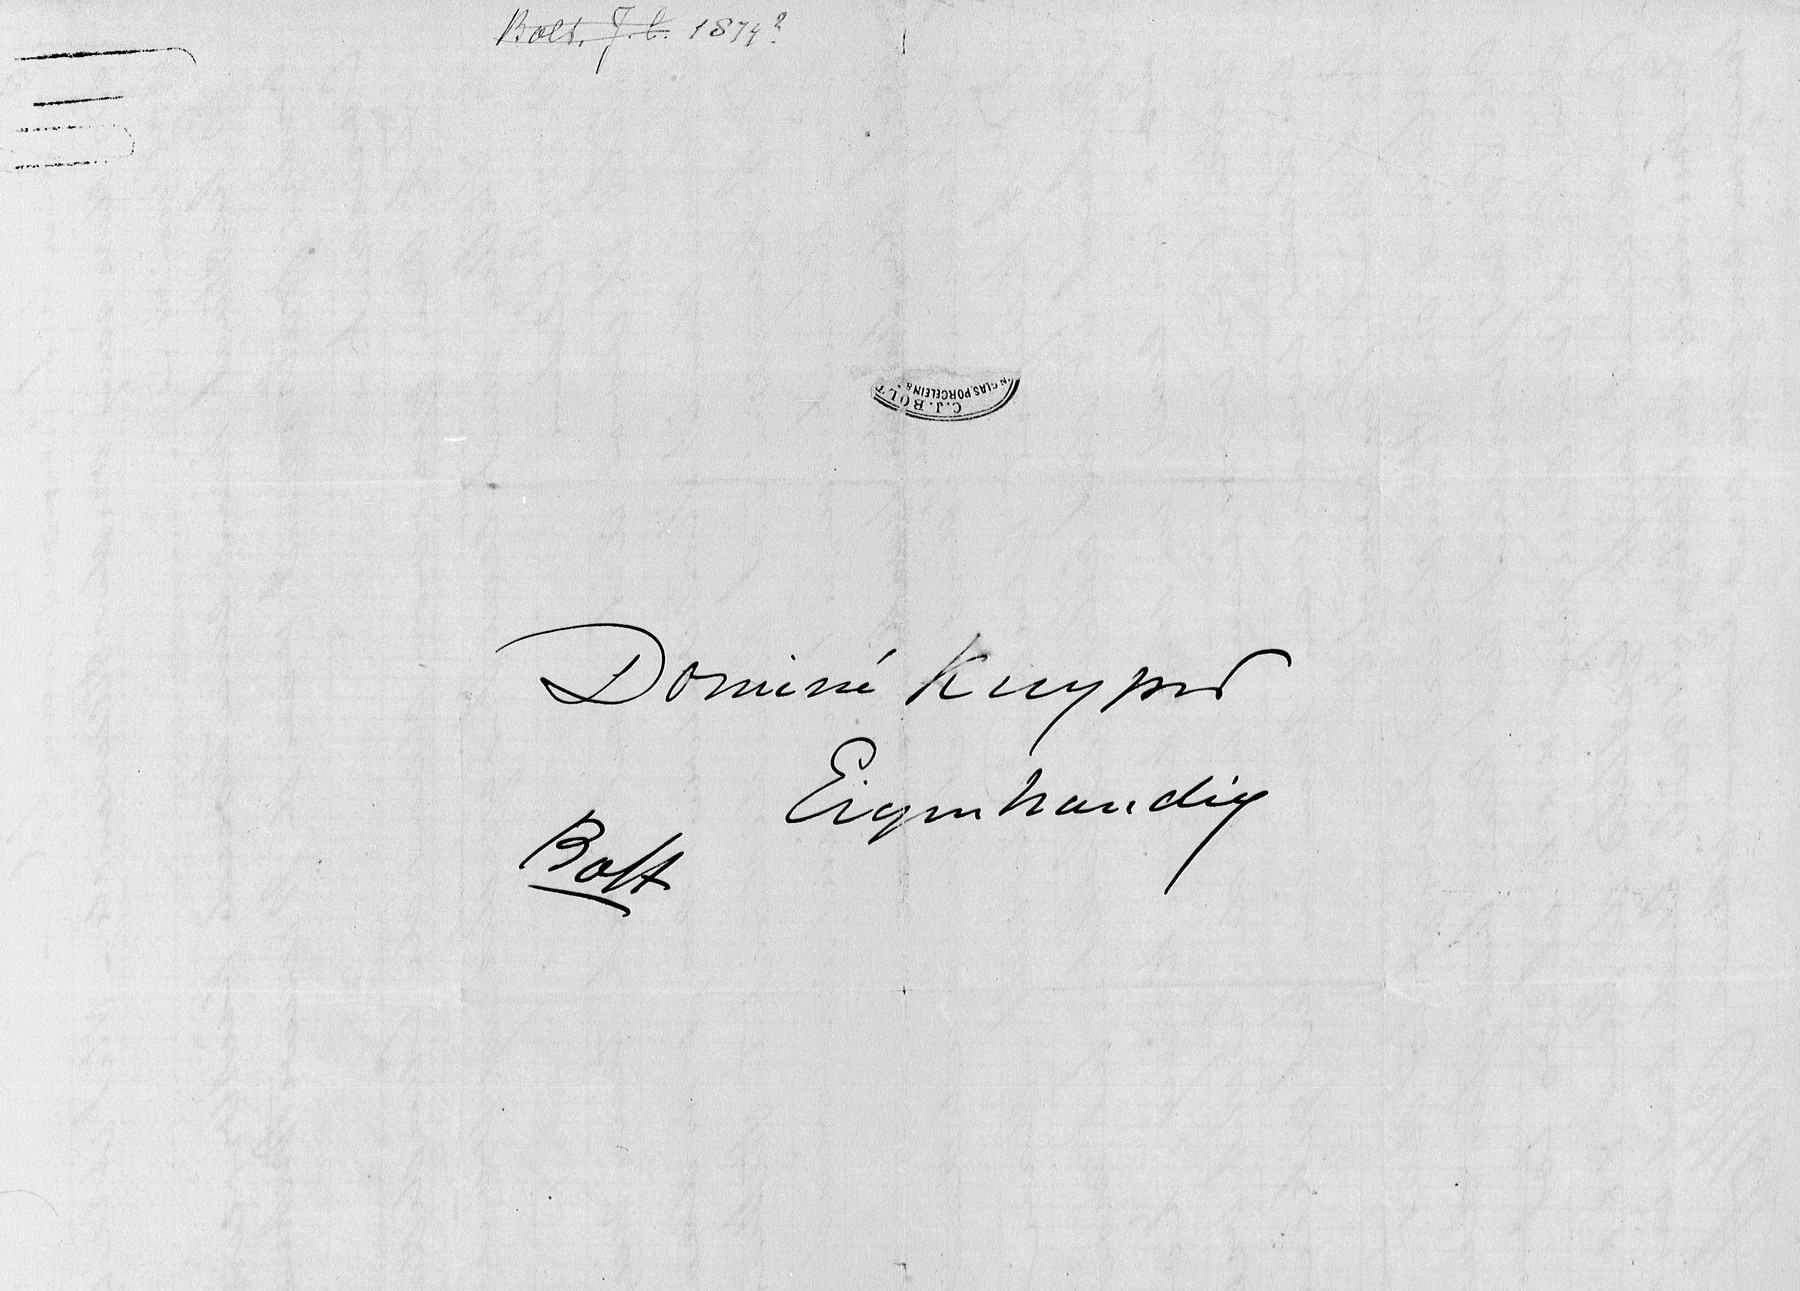 Bolt. J. C. 1874?
C.J. BOLT
IN GLAS, PORCELEIN &
Dominé Kuyper
Eigenhandig
Bolt